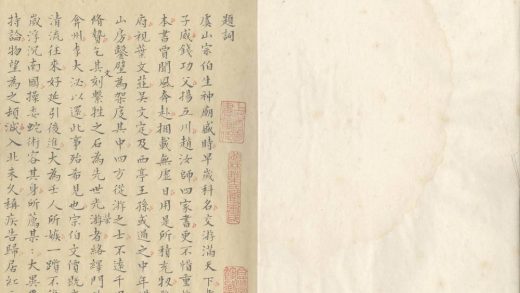 題詞
虞山宗伯生神廟盛時早歲科名交游滿天下
子威錢功父揚五川趙汝師四家書更不惜重
本書賈聞風奔赴捆載無虛日用是所積充牣
府視葉文莊吳文定及西亭王孫或過之中年
山房鑿壁為架庋其中四方從游之士不遠千
脩贄乞其文刻繫牲之石為先世光游者絡繹門
弇州李大泌以還此事殆希見也宗伯文價既
清流往來好延引後進大為壬人所嫉一躓不
歲浮沉南國操委蛇術容其身所薦某:大異
持論物望為之頓減入北未久稱疾告歸居紅